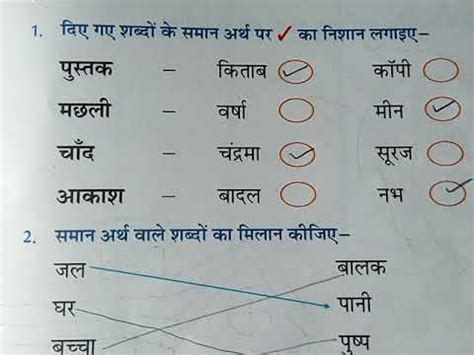 1. दिए गए शब्दों के समान अर्थ पर ✓ का निशान लगाइए–
पुस्तक – किताब ✓ कॉपी
मछली – वर्षा मीन ✓
चाँद – चंद्रमा ✓ सूरज
आकाश – बादल नभ ✓
2. समान अर्थ वाले शब्दों का मिलान कीजिए–
जल बालक
घर पानी
बच्चा पुष्प